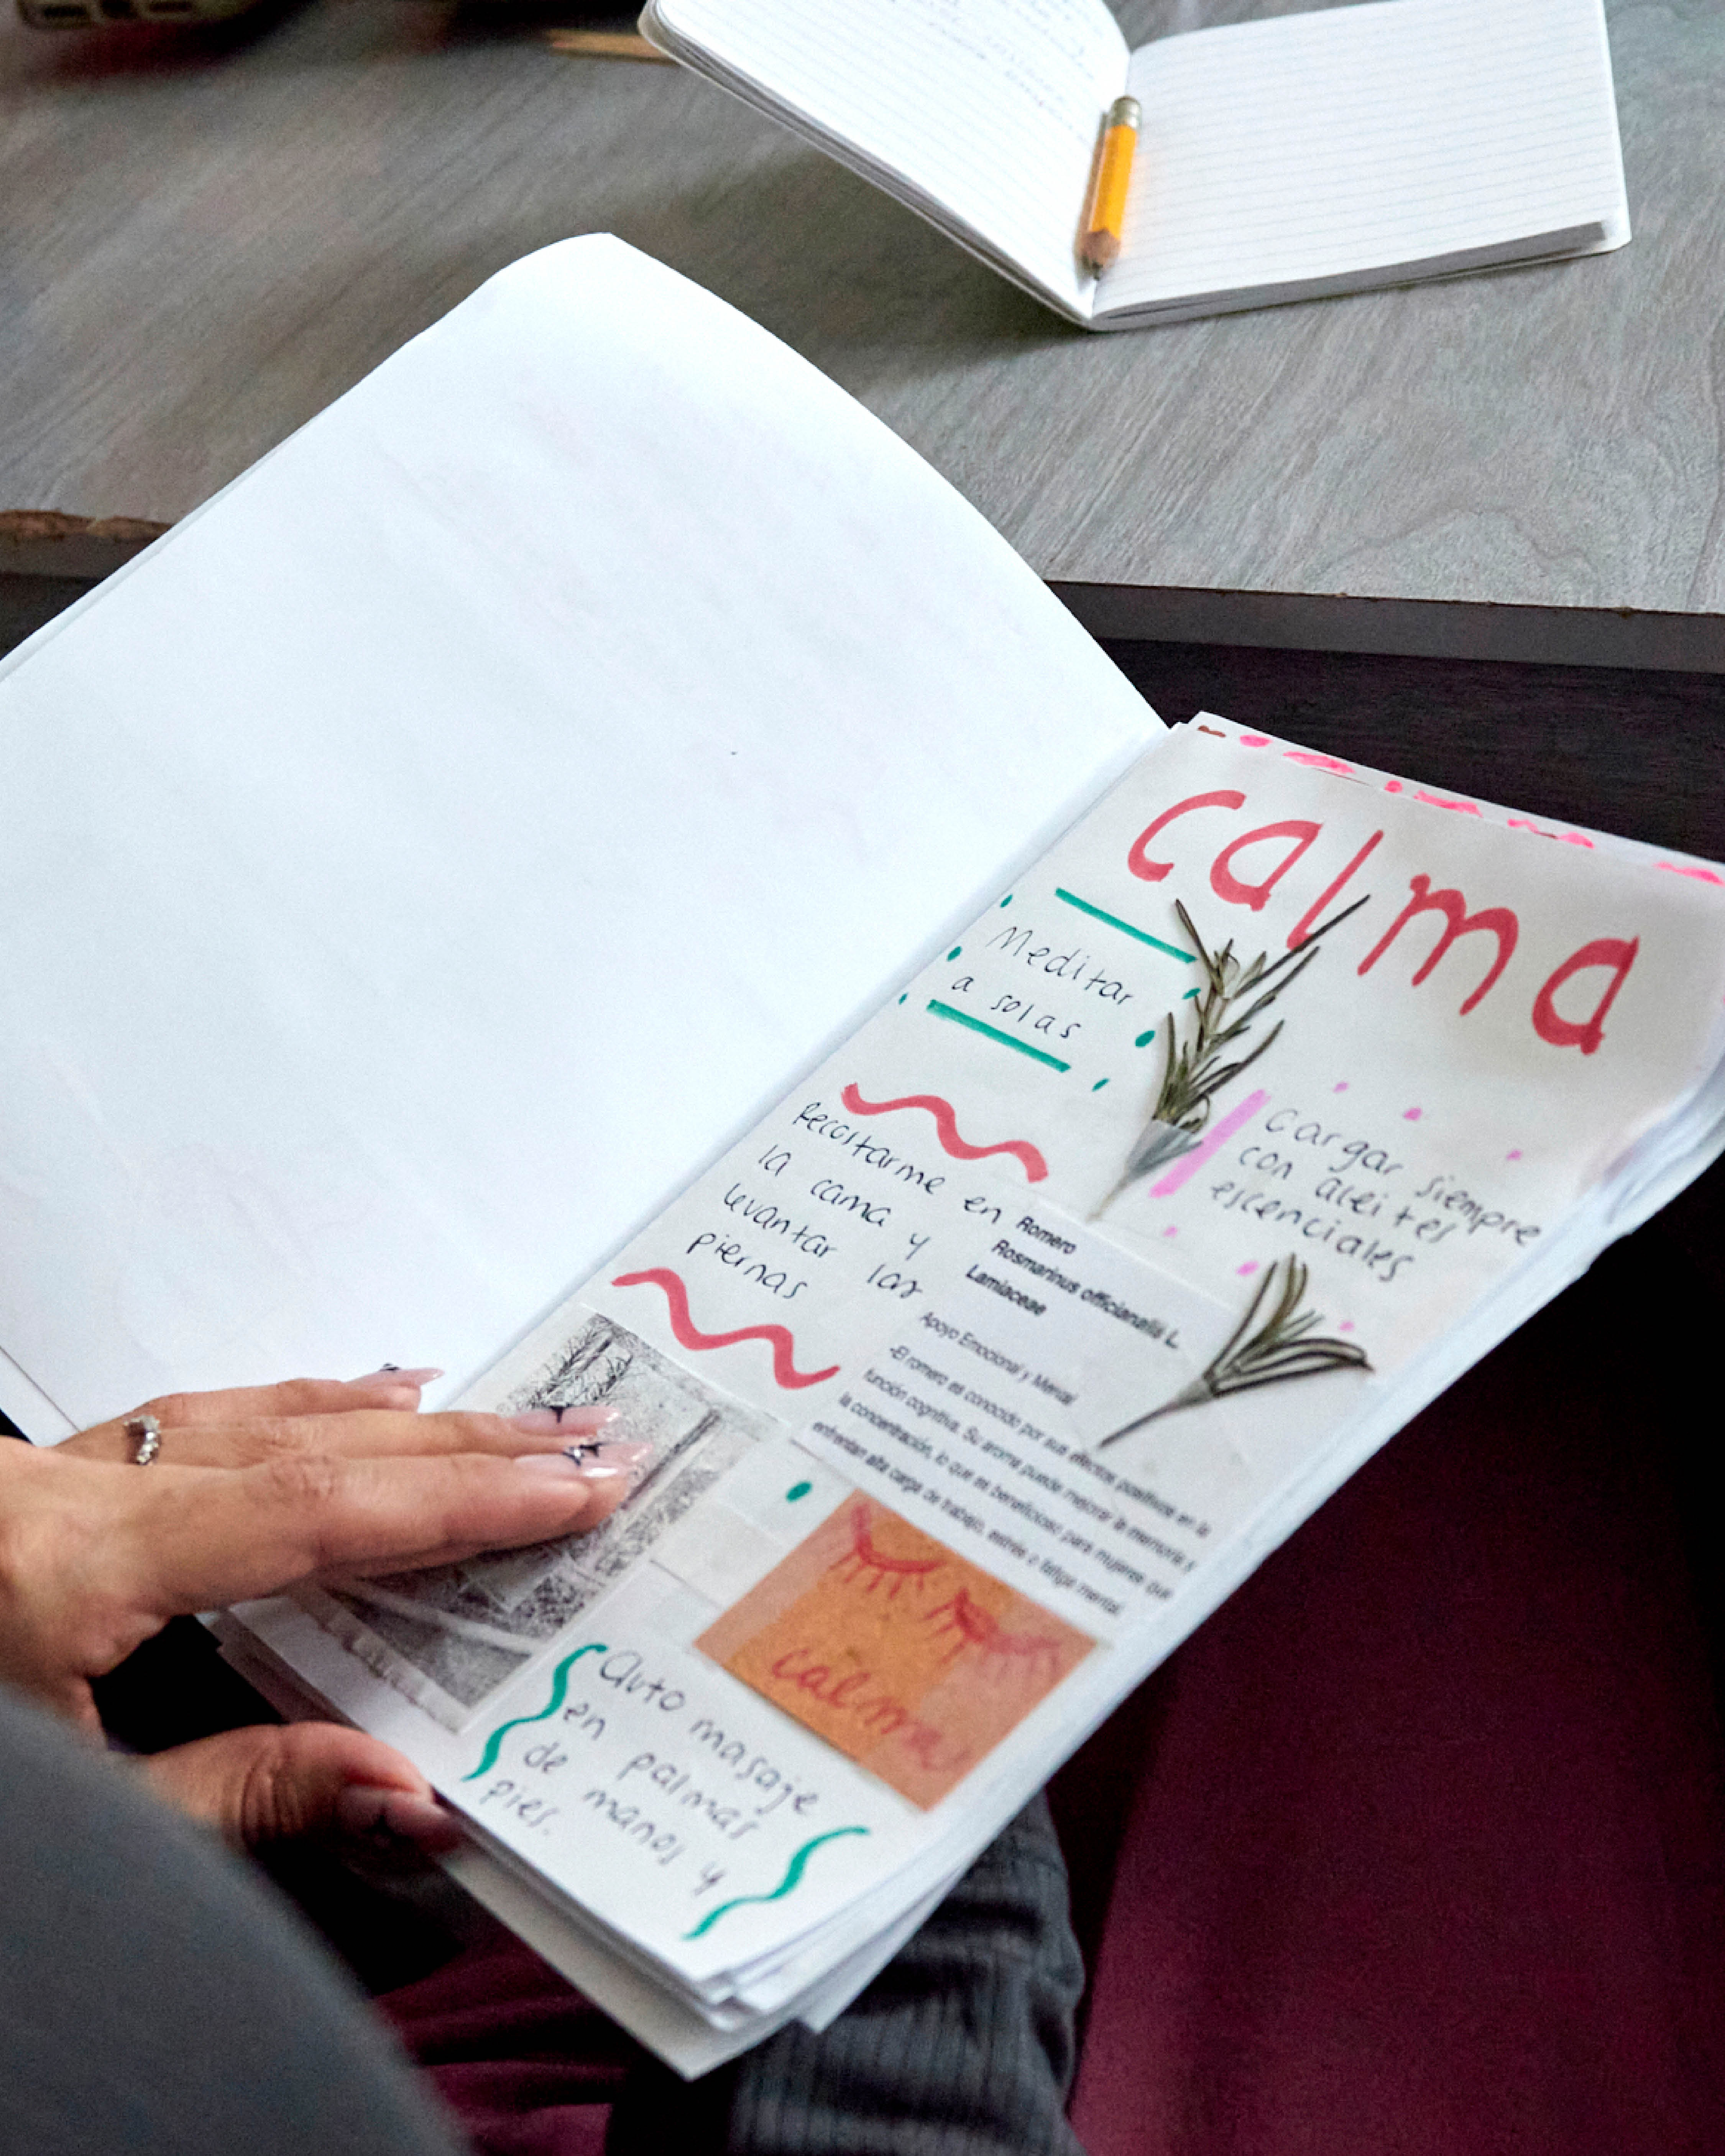 calma
Meditar
a solas
Recostarme en
la cama y
levantar las
piernas
Cargar siempre
con aleites
escenciales
Romero
Rosmarinus officianallis L.
Lamiaceae
Apoyo Emocional y Mental
-El romero es conocido por sus efectos positivos en la
función cognitiva. Su aroma puede mejorar la memoria y
la concentración, lo que es beneficioso para mujeres que
enfrentan alta carga de trabajo, estrés o fatiga mental.
calma
Auto masaje
en palmas
de manos y
pies.